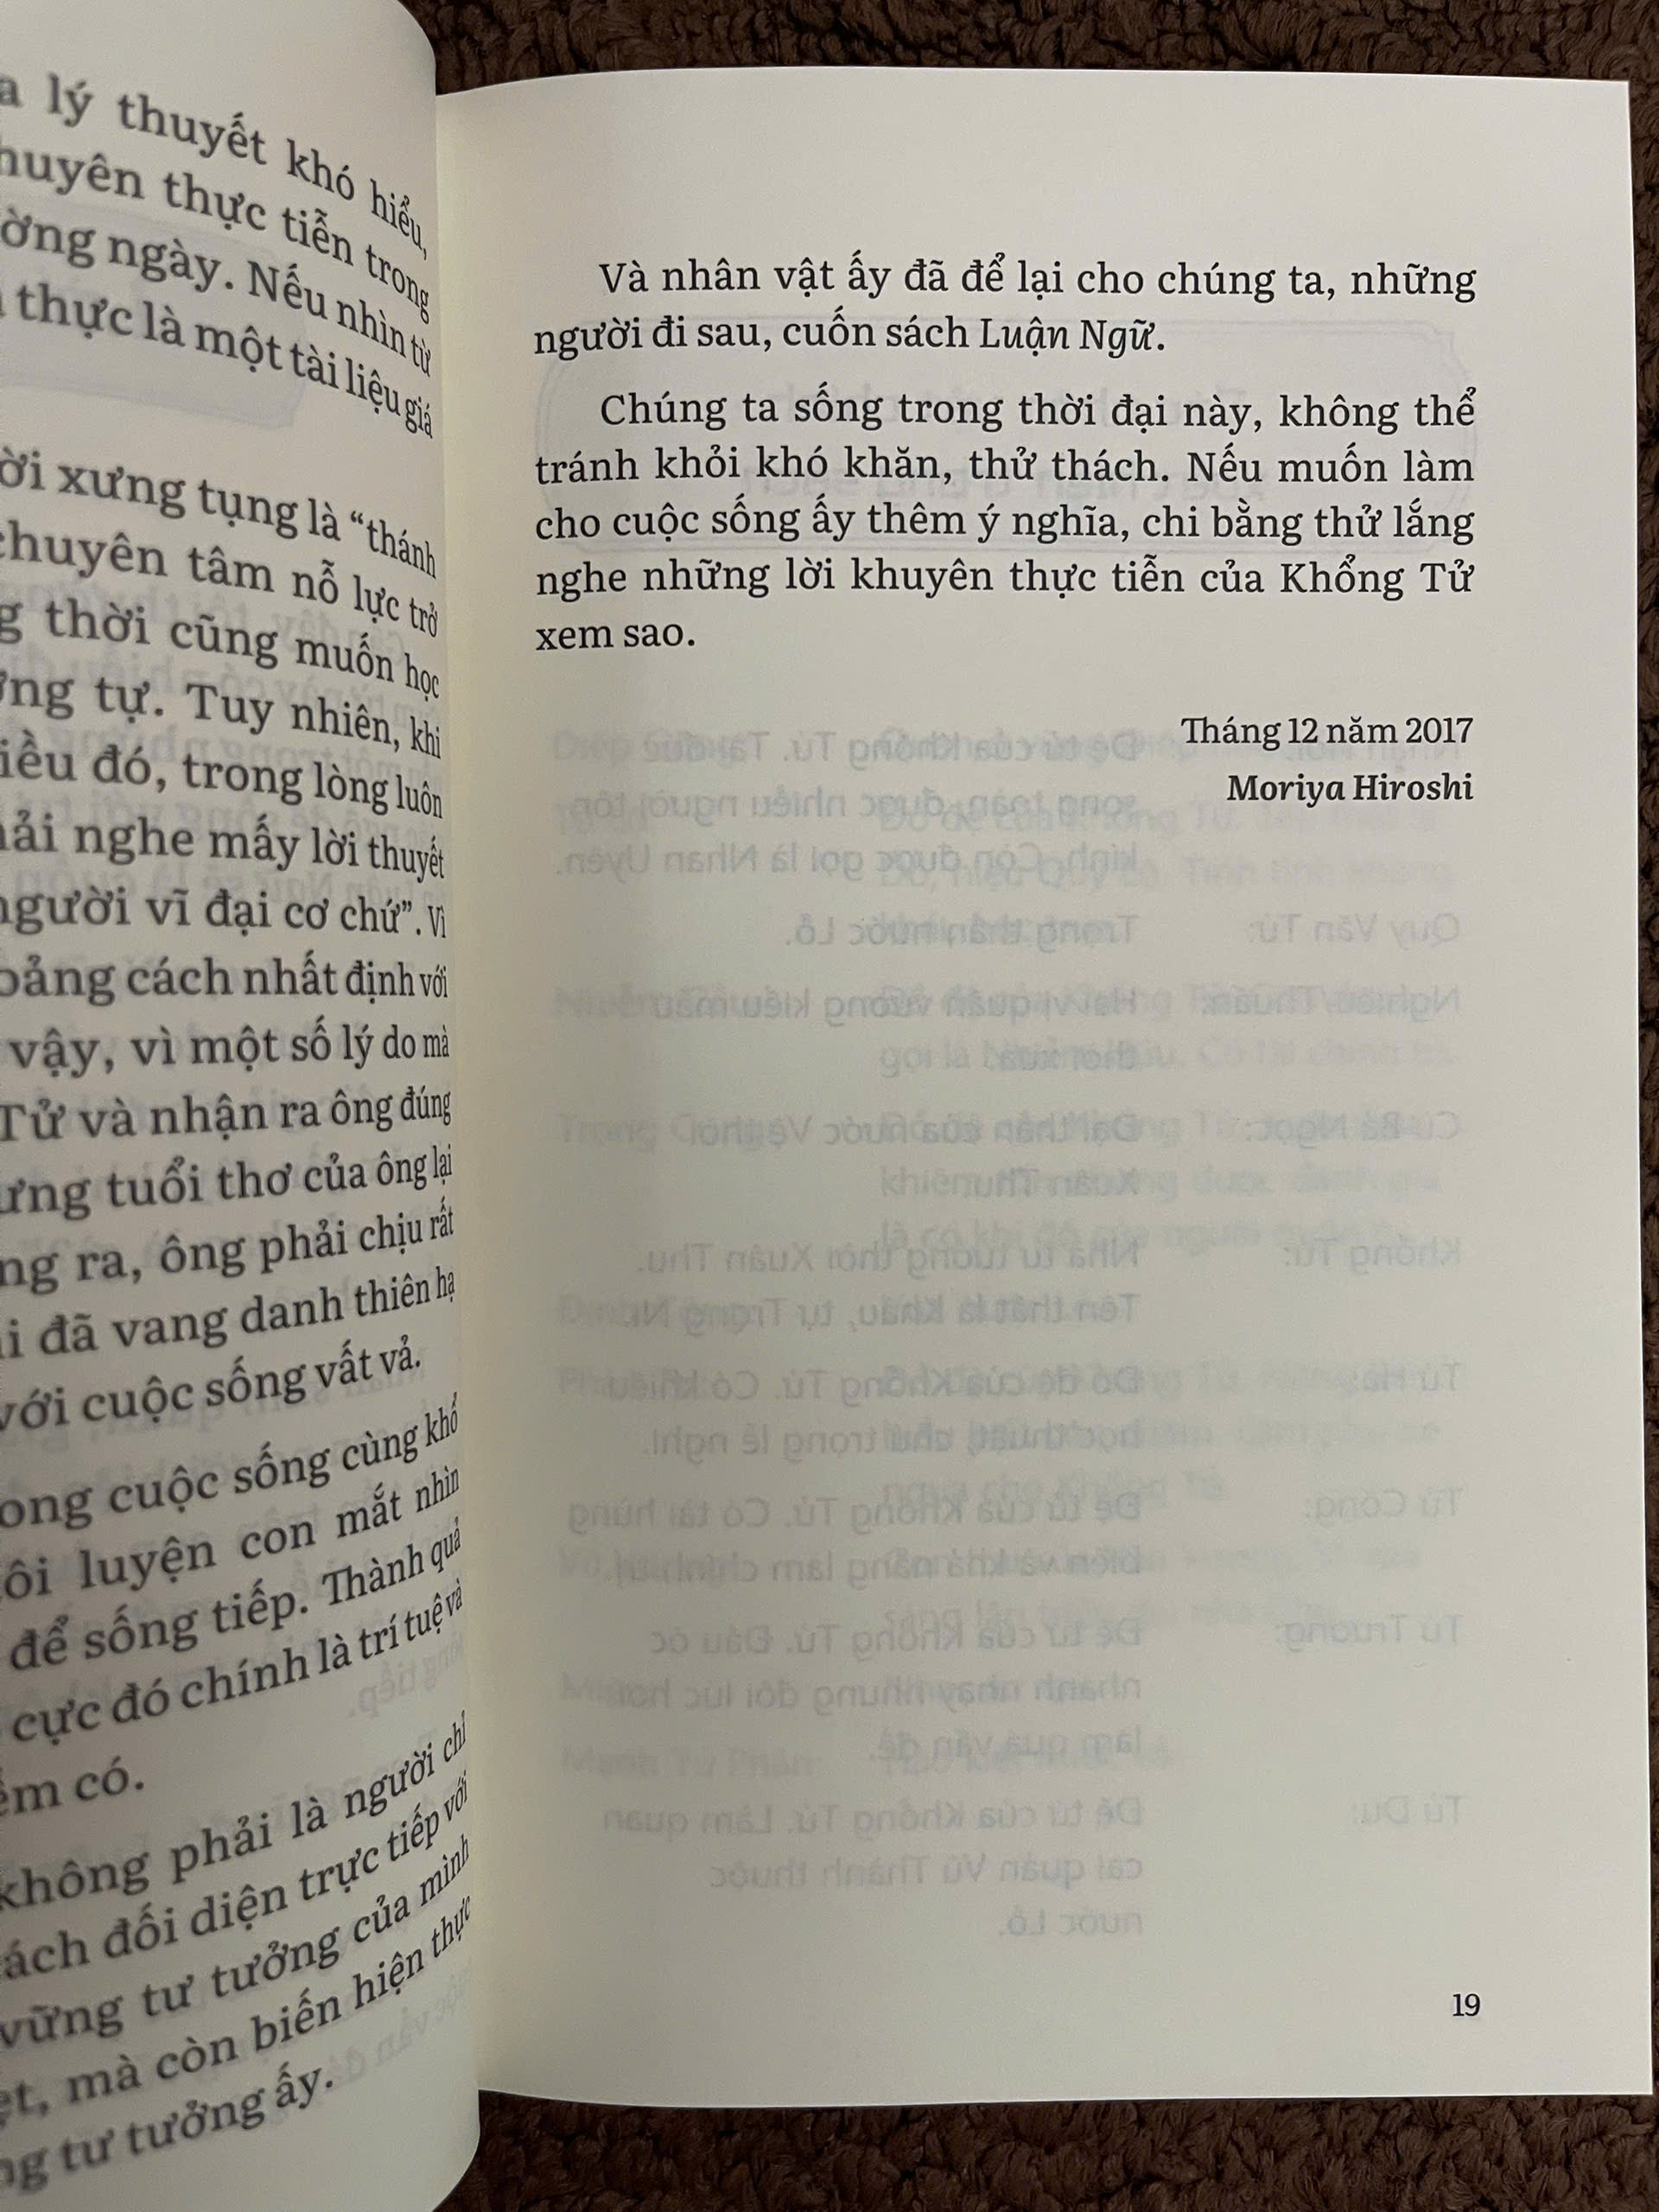 lý thuyết khó hiểu,
thực tiễn trong
ngày. Nếu nhìn từ
thực là một tài liệu giá
xưng tụng là “thánh
chuyên tâm nỗ lực trở
thời cũng muốn học
tự. Tuy nhiên, khi
đó, trong lòng luôn
nghe mấy lời thuyết
người vĩ đại cơ chứ”. Vì
cách nhất định với
vậy, vì một số lý do mà
Tử và nhận ra ông đúng
tuổi thơ của ông lại
ra, ông phải chịu rất
đã vang danh thiên hạ
với cuộc sống vất vả.
cuộc sống cùng khổ
luyện con mắt nhìn
để sống tiếp. Thành quả
cực đó chính là trí tuệ và
có.
không phải là người chỉ
đối diện trực tiếp với
vững tư tưởng của mình
mà còn biến hiện thực
tư tưởng ấy.
Và nhân vật ấy đã để lại cho chúng ta, những
người đi sau, cuốn sách Luận Ngữ.
Chúng ta sống trong thời đại này, không thể
tránh khỏi khó khăn, thử thách. Nếu muốn làm
cho cuộc sống ấy thêm ý nghĩa, chi bằng thử lắng
nghe những lời khuyên thực tiễn của Khổng Tử
xem sao.
Tháng 12 năm 2017
Moriya Hiroshi
19